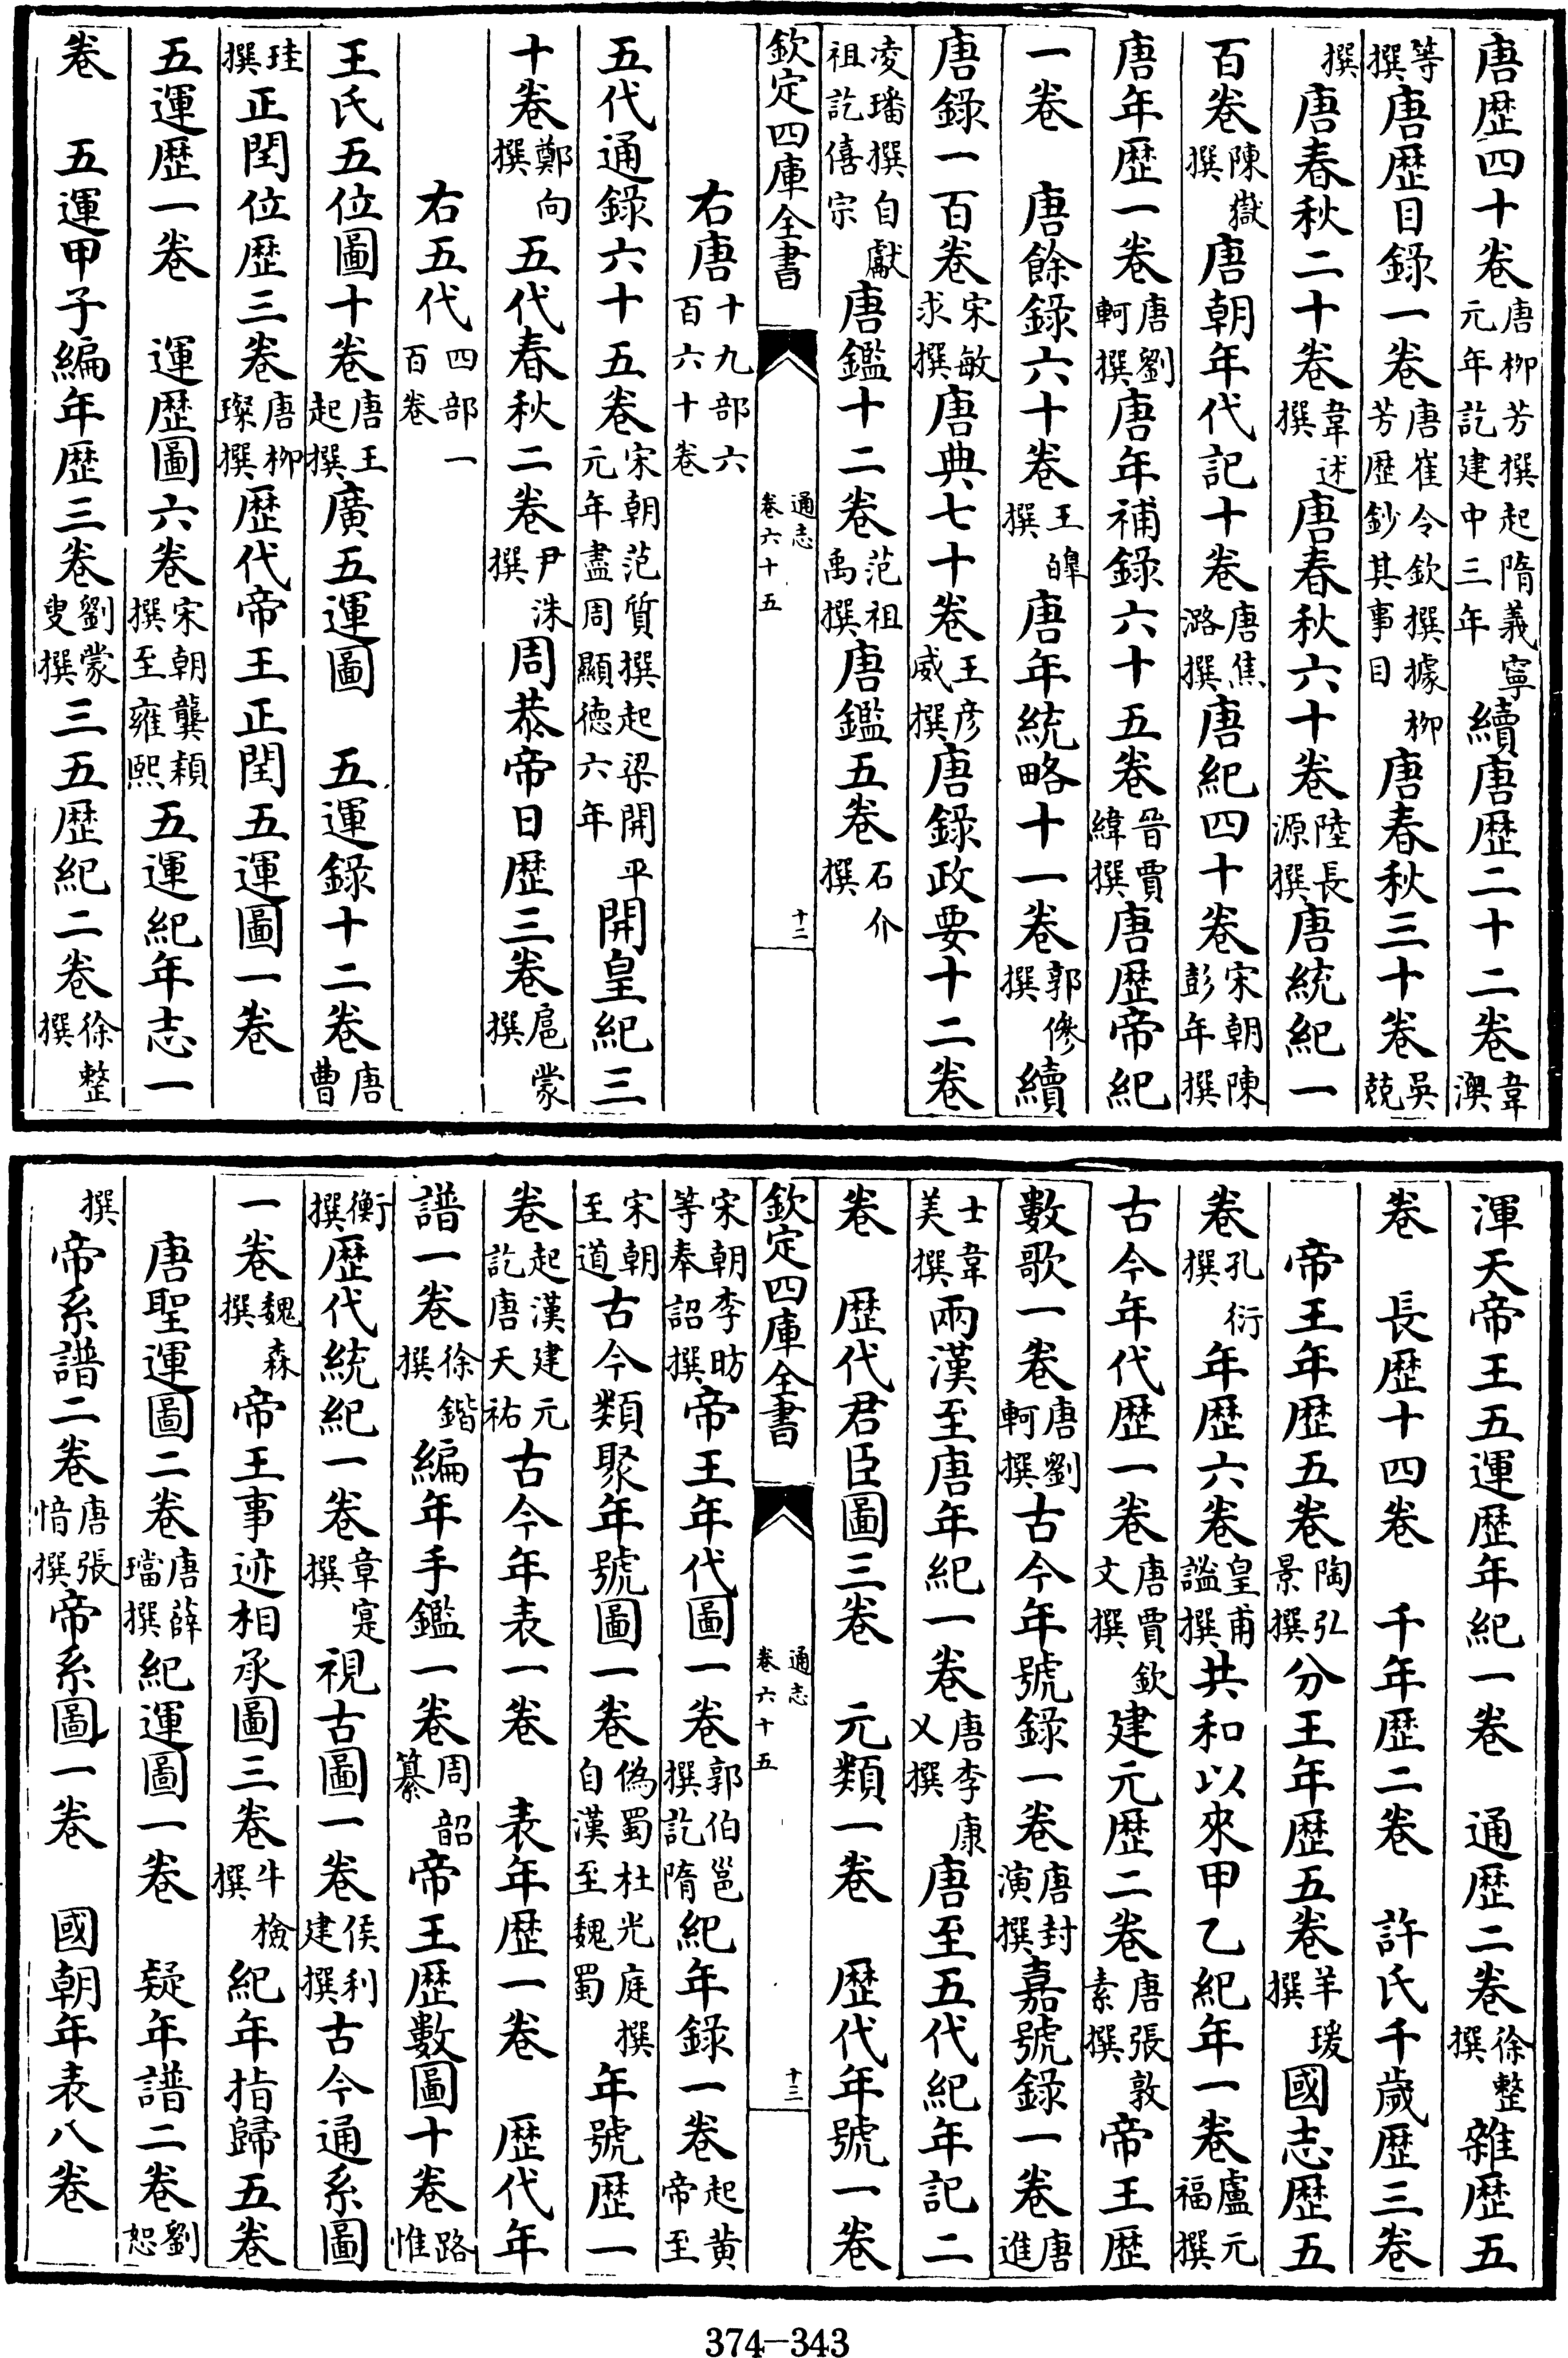 唐歴四十卷唐柳芳撰起隋義寧元年訖建中三年續唐歴二十二卷韋澳
等撰唐歴目錄一卷唐崔令欽撰據柳芳歴鈔其事目唐春秋三十卷吳兢
撰唐春秋二十卷韋述撰唐春秋六十卷陸長源撰唐統紀一
百卷陳嶽撰唐朝年代記十卷唐焦潞撰唐紀四十卷宋朝陳彭年撰
唐年歴一卷唐劉軻撰唐年補錄六十五卷晉賈緯撰唐歴帝紀
一卷唐餘錄六十卷王皥撰唐年統略十一卷郭修撰續
唐錄一百卷宋敏求撰唐典七十卷王彦威撰唐錄政要十二卷
凌璠撰自獻祖訖僖宗唐鑑十二卷范祖禹撰唐鑑五卷石介撰
欽定四庫全書 通志卷六十五 十二
右唐十九部六百六十卷
五代通錄六十五卷宋朝范質撰起梁開平元年盡周顯德六年開皇紀三
十卷鄭向撰五代春秋二卷尹洙撰周恭帝日歴三卷扈蒙撰
右五代四部一百卷
王氏五位圖十卷唐王起撰廣五運圖 五運錄十二卷唐曹
珪撰正閏位歴三卷唐柳璨撰歴代帝王正閏五運圖一卷
五運歴一卷 運歴圖六卷宋朝龔穎撰至雍熙五運紀年志一
卷 五運甲子編年歴三卷劉蒙叟撰三五歴紀二卷徐整撰
渾天帝王五運歴年紀一卷 通歴二卷徐整撰雜歴五
卷 長歴十四卷 千年歴二卷 許氏千歲歴三卷
帝王年歴五卷陶弘景撰分王年歴五卷羊瑗撰國志歴五
卷孔衍撰年歴六卷皇甫謐撰共和以來甲乙紀年一卷盧元福撰
古今年代歴一卷唐賈欽文撰建元歴二卷唐張敦素撰帝王歴
數歌一卷唐劉軻撰古今年號錄一卷唐封演撰嘉號錄一卷唐進
士韋美撰兩漢至唐年紀一卷唐李康乂撰唐至五代紀年記二
卷 歴代君臣圖三卷 元類一卷 歴代年號一卷
欽定四庫全書 通志卷六十五 十三
宋朝李昉等奉詔撰帝王年代圖一卷郭伯邕撰訖隋紀年錄一卷起黃帝至
宋朝至道古今類聚年號圖一卷偽蜀杜光庭撰自漢至魏蜀年號歴一
卷起漢建元訖唐天祐古今年表一卷 表年歴一卷 歴代年
譜一卷徐鍇撰編年手鑑一卷周韶纂帝王歴數圖十卷路惟
衡撰歴代統紀一卷章寔撰視古圖一卷侯利建撰古今通系圖
一卷魏森撰帝王事迹相承圖三卷牛檢撰紀年指歸五卷
唐聖運圖二卷唐薛璫撰紀運圖一卷 疑年譜二卷劉恕
撰帝系譜二卷唐張愔撰帝系圖一卷 國朝年表八卷
374-343